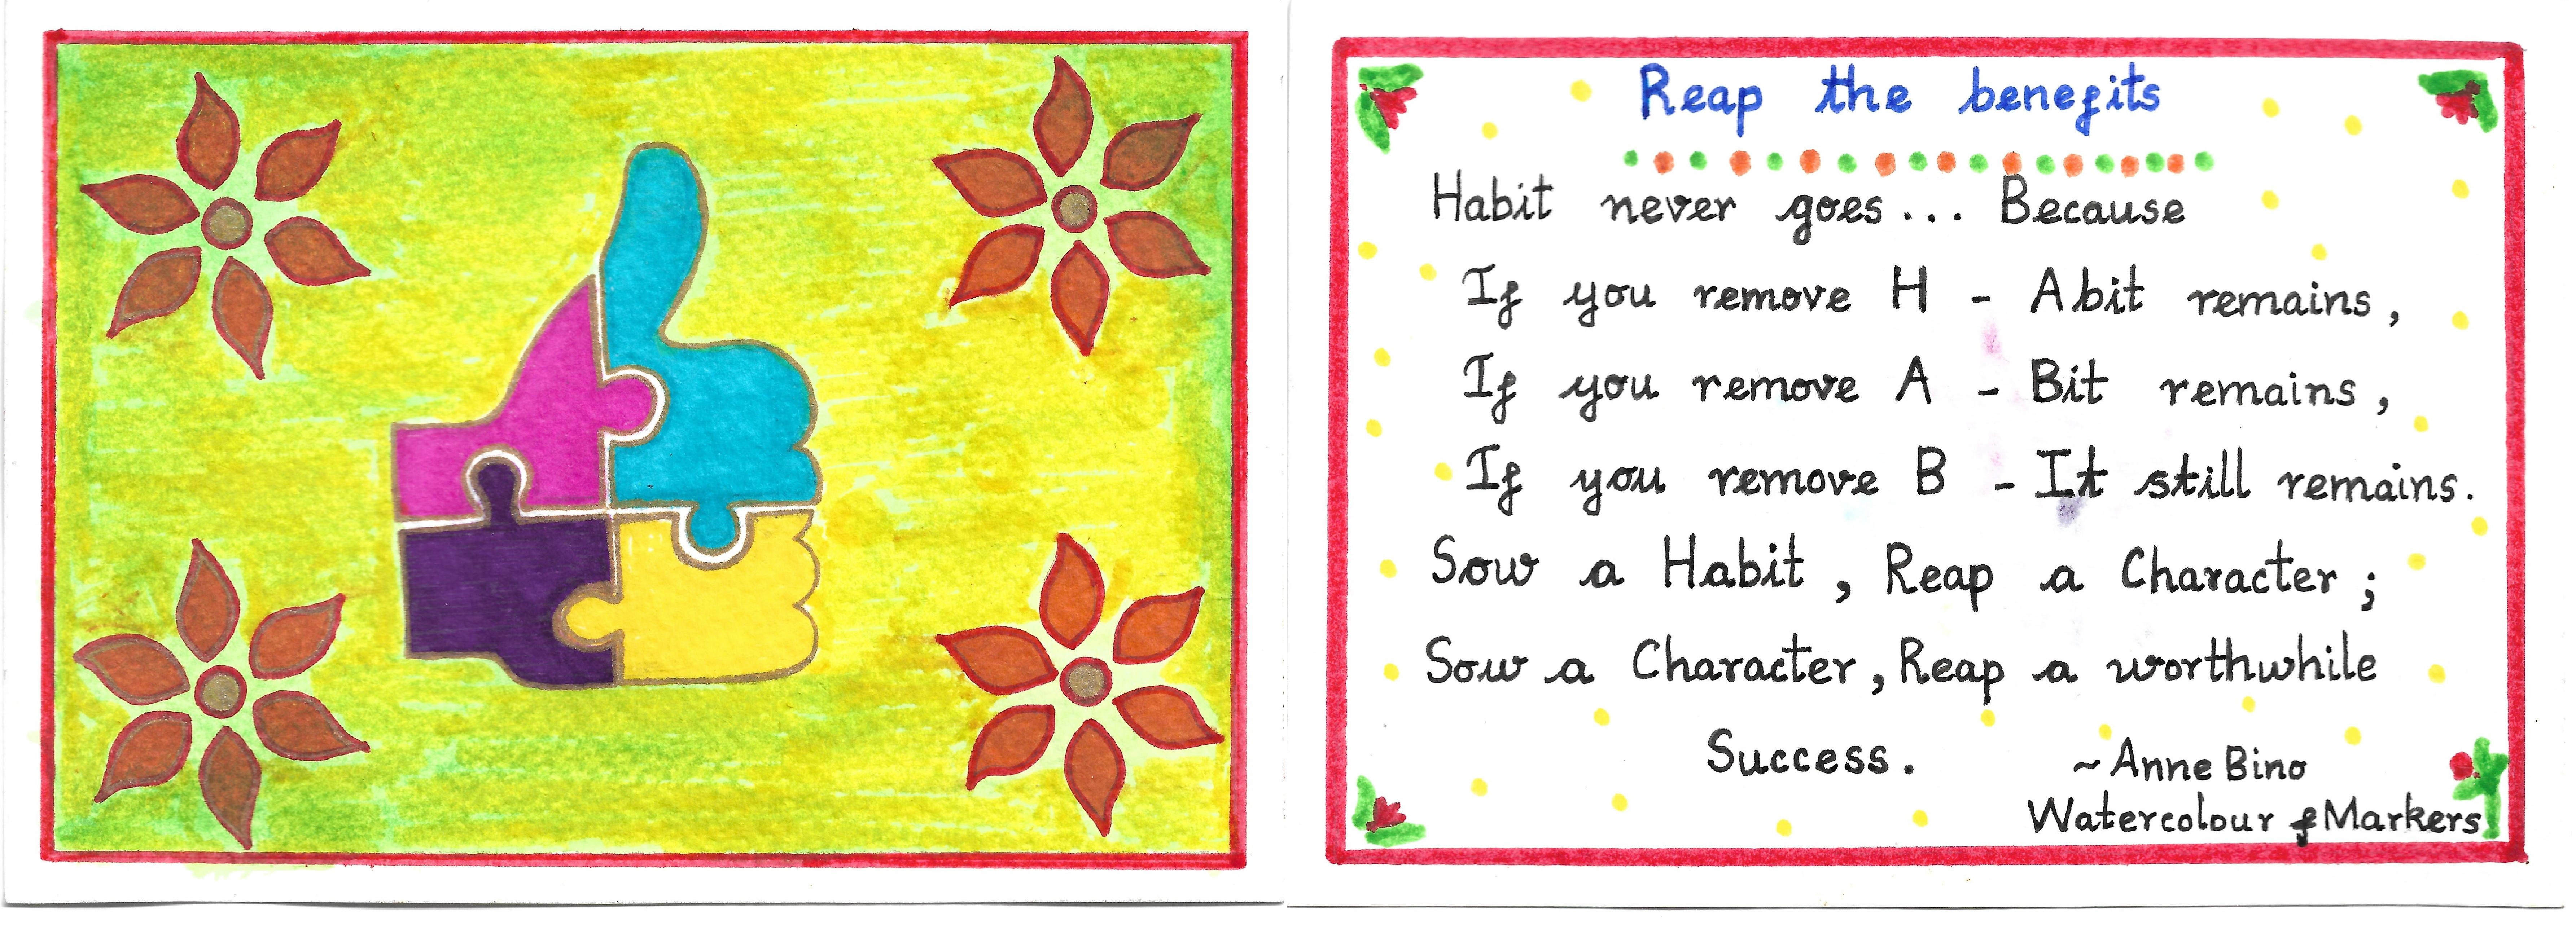 Reap the benefits
Habit never goes... Because
If you remove H - Abit remains,
If you remove A - Bit remains,
If you remove B - It still remains.
Sow a Habit, Reap a Character;
Sow a Character, Reap a worthwhile
Success.
~ Anne Bino
Watercolour & Markers